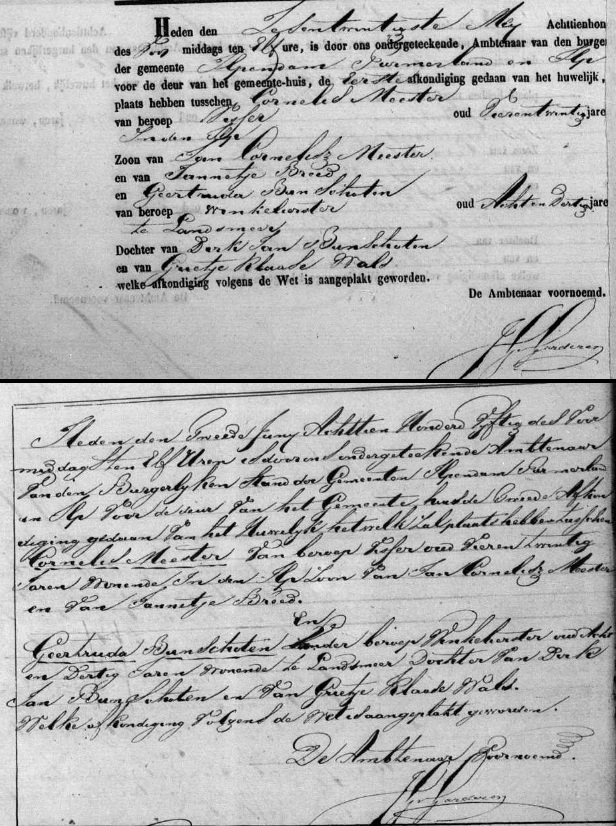 Heden den Zesentwintigste Mey Achttienhon
des Voor middags ten Elf ure, is door ons ondergeteekende, Ambtenaar van den burge
der gemeente Ilpendam Purmerland en Ilp
voor de deur van het gemeente-huis, de eerste afkondiging gedaan van het huwelijk,
plaats hebben tusschen Cornelis Meester
van beroep Visser oud Vierentwintig jare
In den Ilp
Zoon van Jan Cornelisz Meester
en van Jannetje Breed
en Geertruda Bunschoten
van beroep winkelierster oud Acht en Dertig jare
te Landsmeer
Dochter van Derk Jan Bunschoten
en van Grietje Klaase Wals
welke afkondiging volgens de Wet is aangeplakt geworden.
De Ambtenaar voornoemd.
Heden den Tweede Juny Achttien Honderd Vyftig des Voor
middags ten Elf Uren is door ons ondergeteekende Ambtenaar
Van den Burgerlyken Stand der Gemeenten Ilpendam Purmerland
en Ilp Voor de deur Van het Gemeente huis de Tweede Afkon
diging gedaan Van het Huwelyk het welk zal plaats hebben tusschen
Cornelis Meester Van beroep Visser oud Vieren Twintig
Jaren Wonende In den Ilp Zoon Van Jan Cornelisz Meester
en Van Jannetje Breed.
En
Geertruda Bunschoten beroep Winkelierster oud Acht
en Dertig Jaren Wonende te Landsmeer Dochter Van Derk
Jan Bunschoten en Van Grietje Klaase Wals.
Welke afkondiging Volgens de Wet is aangeplakt geworden.
De Ambtenaar Voornoemd.